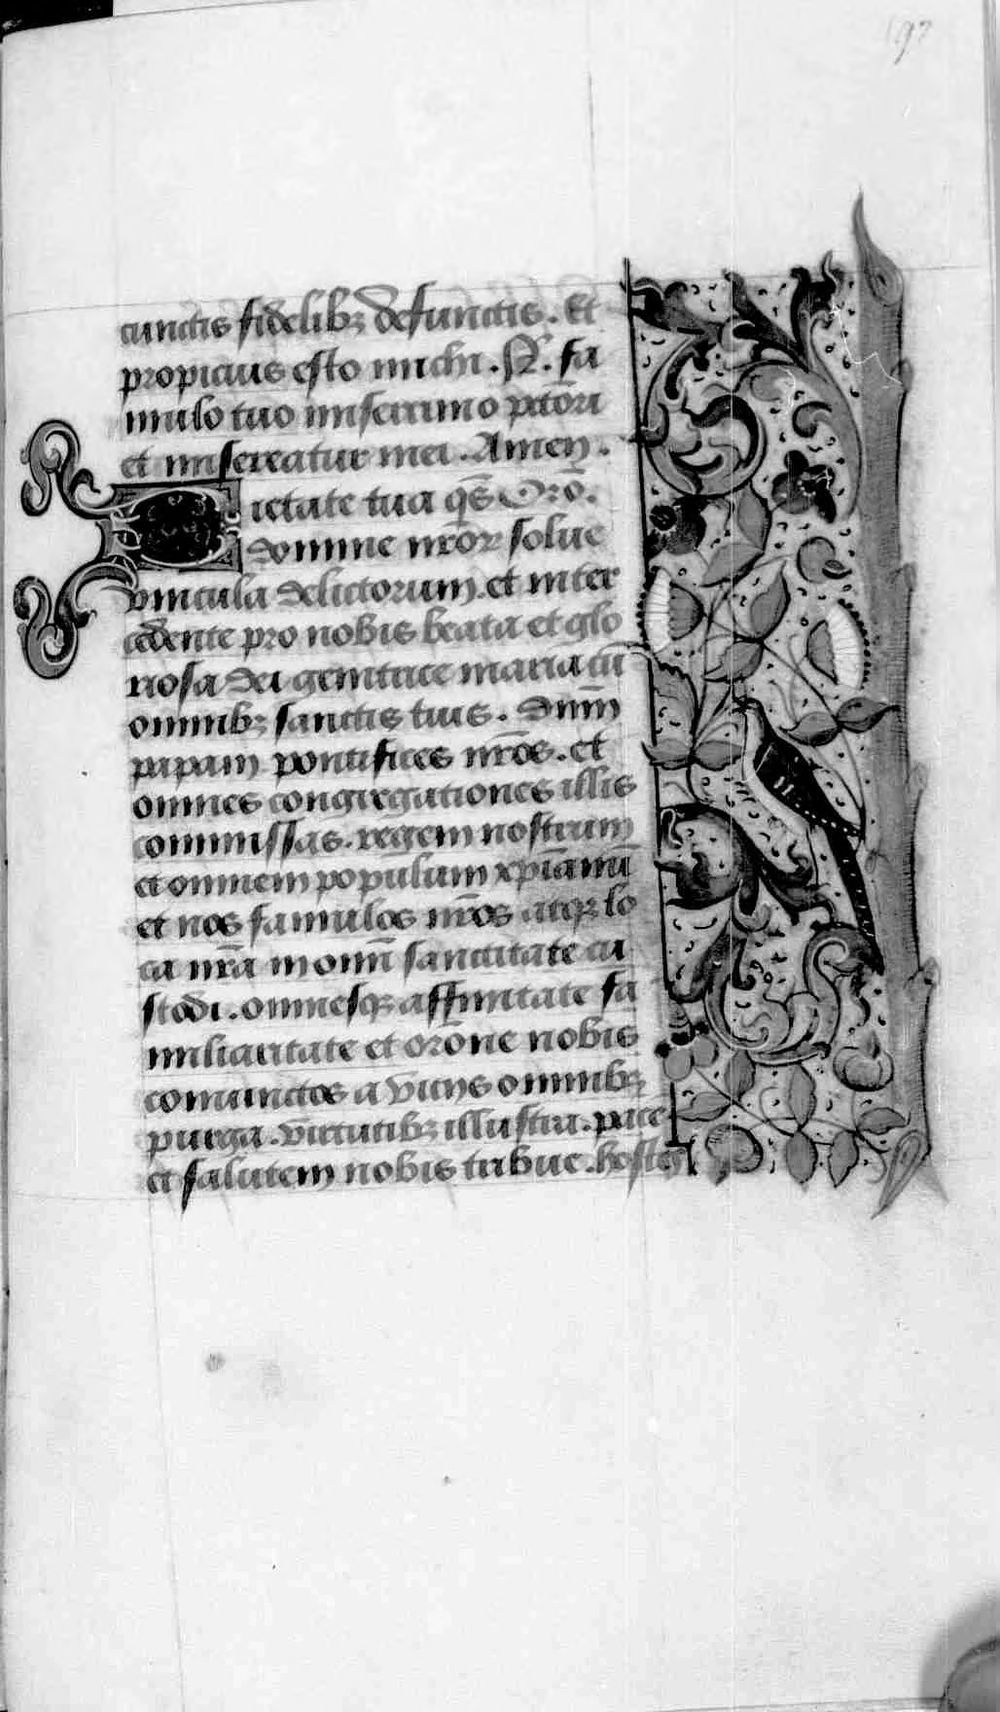 197
cunctis fidelibꝫ defunctis. Et
propicius esto michi. N. fa
mulo tuo miserrimo pctōri
et misereatur mei. Amen.
Pietate tua qs̄ Orō.
domine nrōꝝ solue
vincula delictorum. et inter
cedente pro nobis beata et glo
riosa dei genitrice maria cū
omnibꝫ sanctis tuis. Dnm̄
papam pontifices nrōs. et
omnes congregationes illis
commissas. regem nostrum
et omnem populum xp̄ianū
et nos famulos nrōs atqꝫ lo
ca nrā in omī sanctitate cu
stodi. omnesqꝫ affinitate fa
miliaritate et orōne nobis
coniunctos a vicijs omnibꝫ
purga. virtutibꝫ illustra. pacē
et salutem nobis tribue. hostes